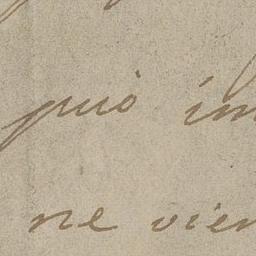 può im
ne vien